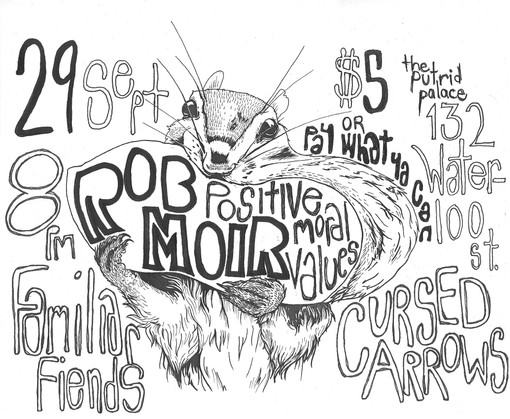 29 Sept
8
PM
Familiar
Fiends
ROB
MOIR
Positive
moral
values
$5
OR
Pay what ya can
the putrid
palace
132
Water-
loo
st.
CURSED
ARROWS